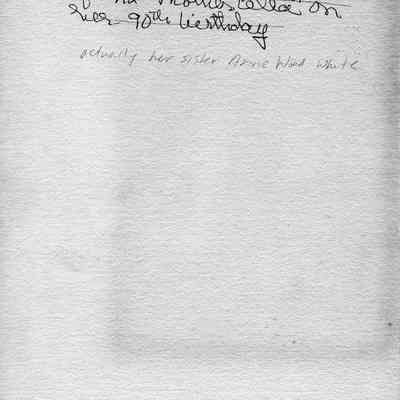 on
her 90th birthday
actually her sister Annie Wood White